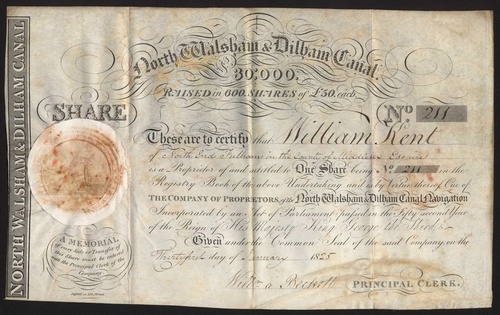 North Walsham & Dilham Canal.
30,000.
RAISED in 600 SHARES of £50, each.
SHARE
No. 211
These are to certify that William Kent
of North End Fulham in the County of Middlesex Esquire
is a Proprietor of and entitled to One Share being No. 211 in the
Registry Book of the above Undertaking and is by Virtue there of One of
THE COMPANY OF PROPRIETORS, of the North Walsham & Dilham Canal Navigation
Incorporated by an Act of Parliament passed in the Fifty second Year
of the Reign of His Majesty King George the Third.
Given under the Common Seal of the said Company, on the
Thirty first day of January 1825
Willm. a Beckett
PRINCIPAL CLERK.
A MEMORIAL
of every Sale or Transfer of
this Share must be entered
with the Principal Clerk of the
Company.
NORTH WALSHAM & DILHAM CANAL